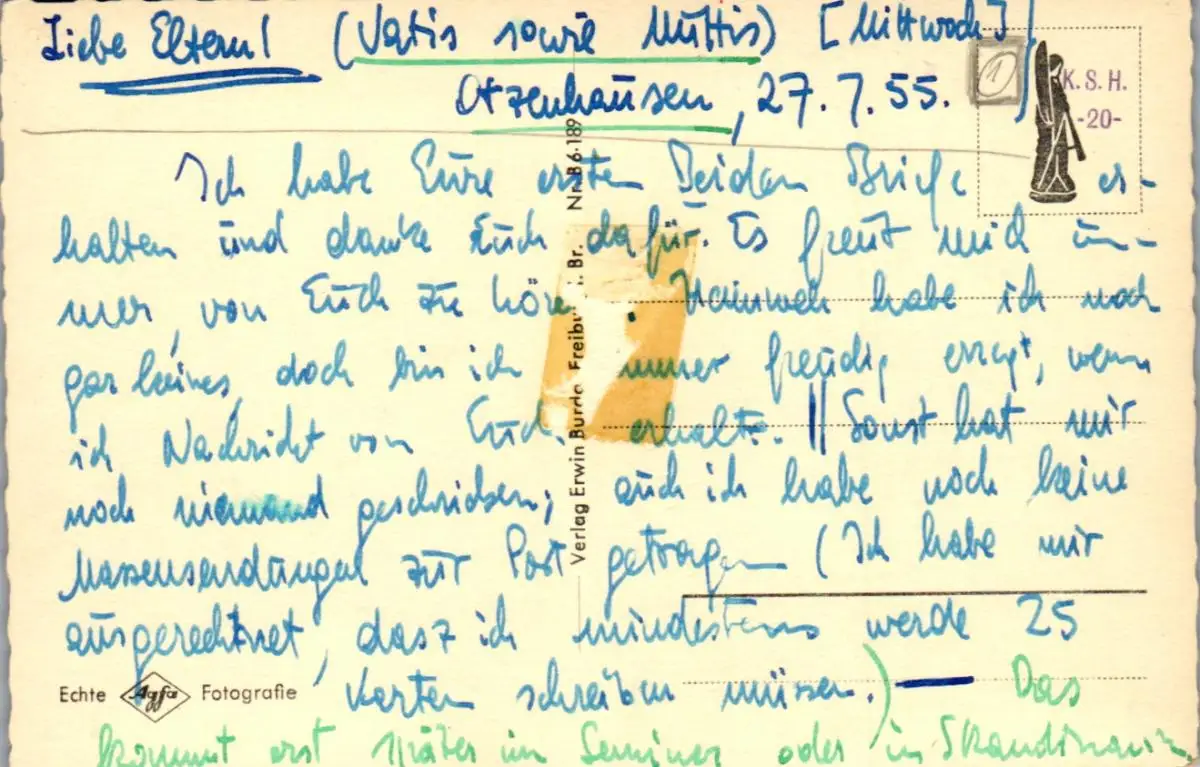 Liebe Eltern! (Vatis sowie Muttis) [Mittwoch]
Otzenhausen, 27. 7. 55.
1
K. S. H.
-20-
Ich habe Eure ersten Beiden Briefe er-
halten und danke Euch dafür. Es freut mich im-
mer, von Euch zu höre Heimweh habe ich noch
gar keines, doch bin ich immer freudig erregt, wenn
ich Nachricht von Euch erhalte. || Sonst hat mir
noch niemand geschrieben; auch ich habe noch keine
Massensendungen zur Post getragen (Ich habe mir
ausgerechnet, dasz ich mindestens werde 25
Karten schreiben müssen.) — Das
kommt erst später im Seminar oder in Skandinavien
Echte Agfa Fotografie
Verlag Erwin Burda Freibu i. Br. Nr. B 6·189